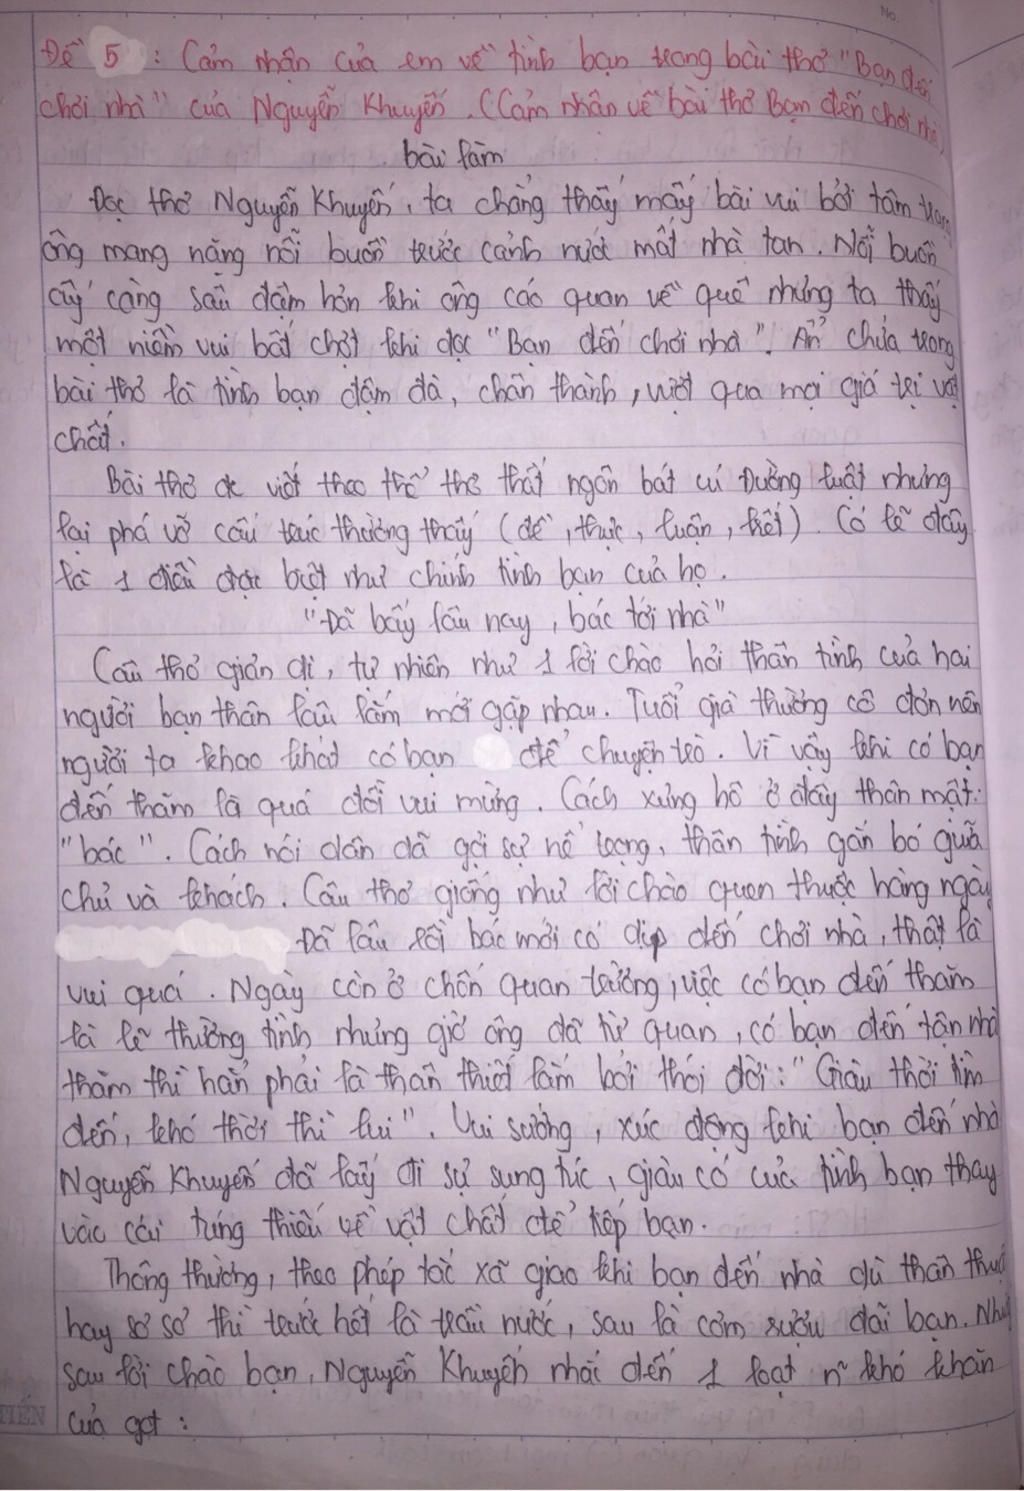 No.
Đề 5 : Cảm nhận của em về tình bạn trong bài thơ "Bạn đến
chơi nhà" của Nguyễn Khuyến. (Cảm nhận về bài thơ Bạn đến chơi nhà)
bài làm
Đọc thơ Nguyễn Khuyến, ta chẳng thấy mấy bài vui bởi tâm trạng
ông mang nặng nỗi buồn trước cảnh nước mất nhà tan. Nỗi buồn
ấy càng sâu đậm hơn khi ông cáo quan về quê nhưng ta thấy
một niềm vui bất chợt khi đọc "Bạn đến chơi nhà". Ẩn chứa trong
bài thơ là tình bạn đậm đà, chân thành, vượt qua mọi giá trị vật
chất.
Bài thơ đc viết theo thể thơ thất ngôn bát cú Đường luật nhưng
lại phá vỡ cấu trúc thường thấy (đề, thực, luận, kết). Có lẽ đây
là 1 điều đặc biệt như chính tình bạn của họ.
"Đã bấy lâu nay, bác tới nhà"
Câu thơ giản dị, tự nhiên như 1 lời chào hỏi thân tình của hai
người bạn thân lâu lắm mới gặp nhau. Tuổi già thường cô đơn nên
người ta khao khát có bạn để chuyện trò. Vì vậy khi có bạn
đến thăm là quá đỗi vui mừng. Cách xưng hô ở đây thân mật:
"bác". Cách nói dân dã gợi sự nể trọng, thân tình gắn bó giữa
chủ và khách. Câu thơ giống như lời chào quen thuộc hàng ngày
Đã lâu rồi bác mới có dịp đến chơi nhà, thật là
vui quá. Ngày còn ở chốn quan trường, việc có bạn đến thăm
là lẽ thường tình nhưng giờ ông đã từ quan, có bạn đến tận nhà
thăm thì hẳn phải là thân thiết lắm bởi thói đời: "Giàu thời tìm
đến, khó thời thì lui". Vui sướng, xúc động khi bạn đến nhà
Nguyễn Khuyến đã lấy đi sự sung túc, giàu có của tình bạn thay
vào cái túng thiếu về vật chất để tiếp bạn.
Thông thường, theo phép tắc xã giao khi bạn đến nhà dù thân thuộc
hay sơ sơ thì trước hết là trầu nước, sau là cơm rượu đãi bạn. Nhưng
sau lời chào bạn, Nguyễn Khuyến nhắc đến 1 loạt n~ khó khăn
của gđ :